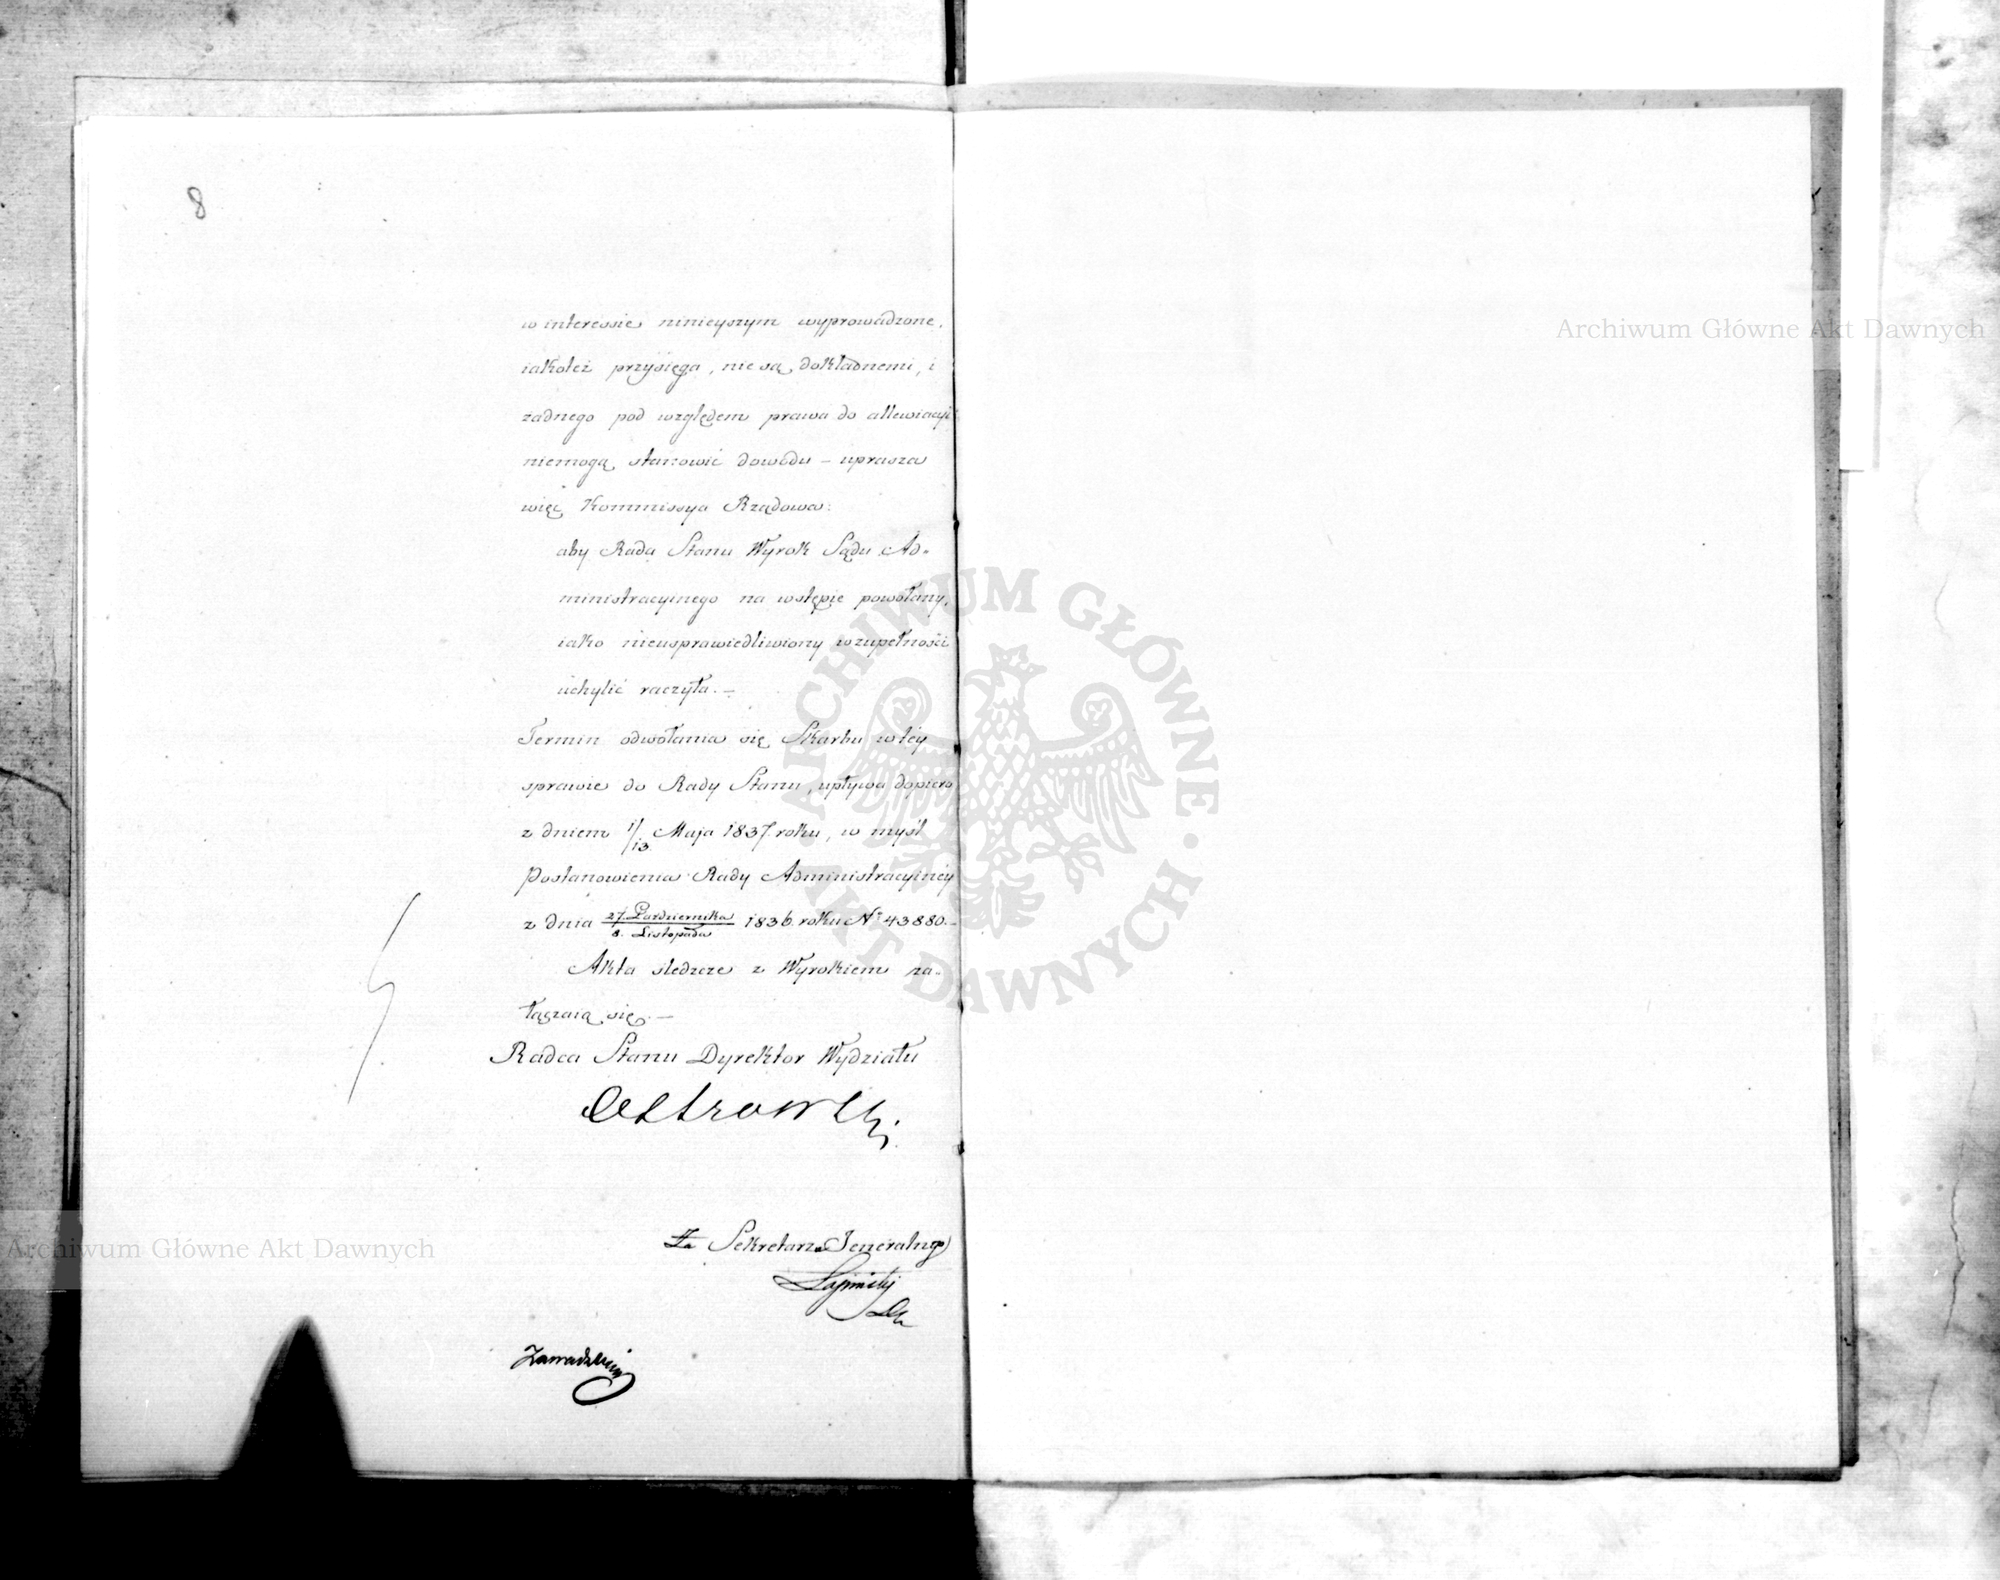 8
w interessie ninieyszym wyprowadzone,
iakoteż przysięga, nie są dokładnemi, i
żadnego pod względem prawa do allewiacyi
niemogą stanowić dowodu – uprasza
więc Kommissya Rządowa:
aby Rada Stanu Wyrok Sądu Ad=
ministracyinego na wstępie powołany,
iako nieusprawiedliwiony wzupełności
uchylić raczyła. –
Termin odwołania się Skarbu wtéy
sprawie do Rady Stanu, upływa dopiero
z dniem 1/13 Maja 1837 roku, w myśl
Postanowienia Rady Administracyinéy
z dnia 27 Października / 8. Listopada 1836 roku Nr 43880. –
Akta śledcze z Wyrokiem za=
łączaią się. –
Radca Stanu Dyrektor Wydziału
Za Sekretarza Jeneralnego
Archiwum Główne Akt Dawnych
Archiwum Główne Akt Dawnych
ARCHIWUM GŁÓWNE · AKT DAWNYCH ·